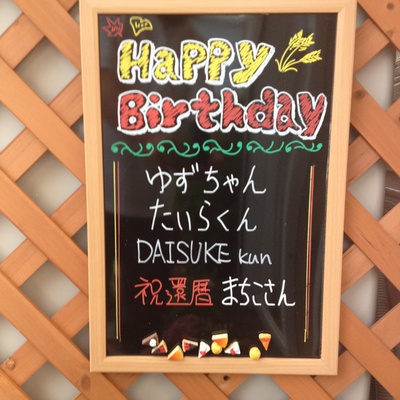 Happy
Birthday
ゆずちゃん
たいらくん
DAISUKE kun
祝還暦 まちこさん